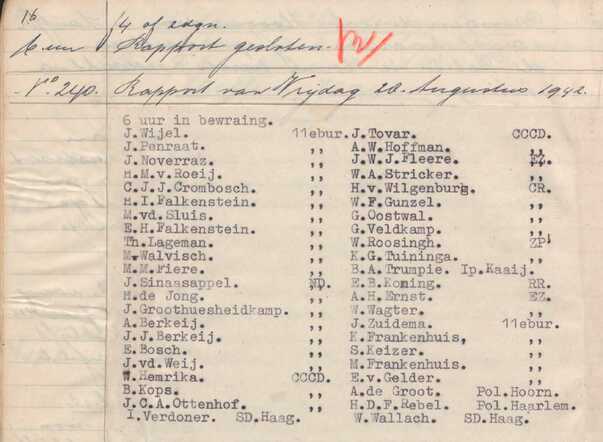 16 14 of edgn.
6 uur Rapport gesloten.
No. 240. Rapport van Vrijdag 28. Augustus 1942.
6 uur in bewraing.
J.Wijel. 11ebur. J.Tovar. CCCD.
J.Penraat. ,, A.W.Hoffman. ,,
J.Noverraz. ,, J.W.J.Fleere. EZ.
H.M.v.Roeij. ,, W.A.Stricker. ,,
C.J.J.Crombosch. ,, H.v.Wilgenburg. CR.
H.I.Falkenstein. ,, W.F.Gunzel. ,,
M.vd.Sluis. ,, G.Oostwal. ,,
E.H.Falkenstein. ,, G.Veldkamp. ,,
Th.Lageman. ,, W.Roosingh. ZP.
M.Walvisch. ,, K.G.Tuininga. ,,
M.M.Fiere. ,, B.A.Trumpie. Ip.Kaaij.
J.Sinaasappel. ND. E.B.Koning. RR.
H.de Jong. ,, A.H.Ernst. EZ.
J.Groothuesheidkamp. ,, W.Wagter. ,,
A.Berkeij. ,, J.Zuidema. 11ebur.
J.J.Berkeij. ,, K.Frankenhuis, ,,
E.Bosch. ,, S.Keizer. ,,
J.vd.Weij. ,, M.Frankenhuis. ,,
W.Hemrika. CCCD. E.v.Gelder. ,,
B.Kops. ,, A.de Groot. Pol.Hoorn.
J.C.A.Ottenhof. ,, H.D.F.Rebel. Pol.Haarlem.
I.Verdoner. SD.Haag. W.Wallach. SD.Haag.